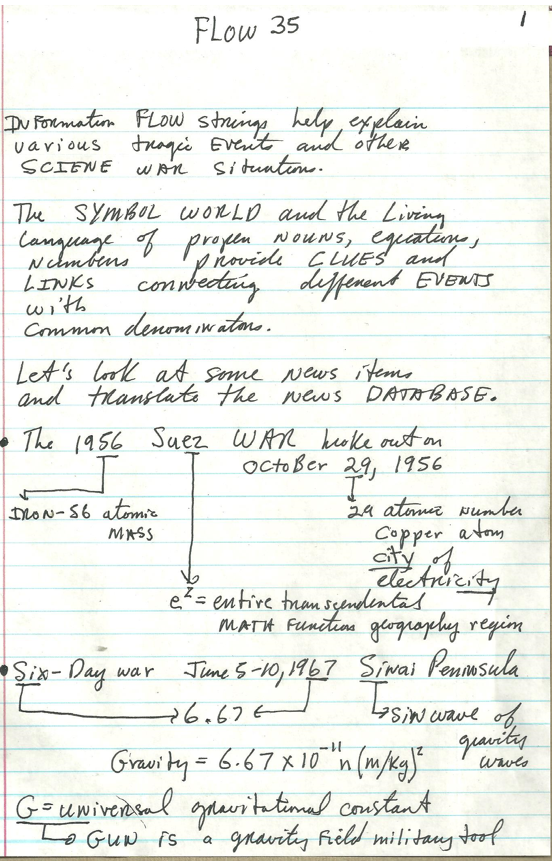 FLOW 35
1
INFormation FLOW strings help explain
various tragic EVENTS and other
SCIENE WAR Situations.
The SYMBOL WORLD and the Living
Language of proper NOUNS, equations,
Numbers provide CLUES and
LINKS connecting different EVENTS
with
Common denominators.
Let's look at some News items
and translate the news DATABASE.
• The 1956 Suez WAR broke out on
OCTOBER 29, 1956
IRON-56 atomic
MASS
29 atomic number
Copper atom
city of
electricity
e^z = entire transcendental
MATH Function geography region
• Six-Day war June 5-10, 1967 Sinai Peninsula
6.67
Sin wave of
gravity
waves
Gravity = 6.67 x 10^-11 n (m/kg)^2
G = universal gravitational constant
GUN is a gravity field military tool